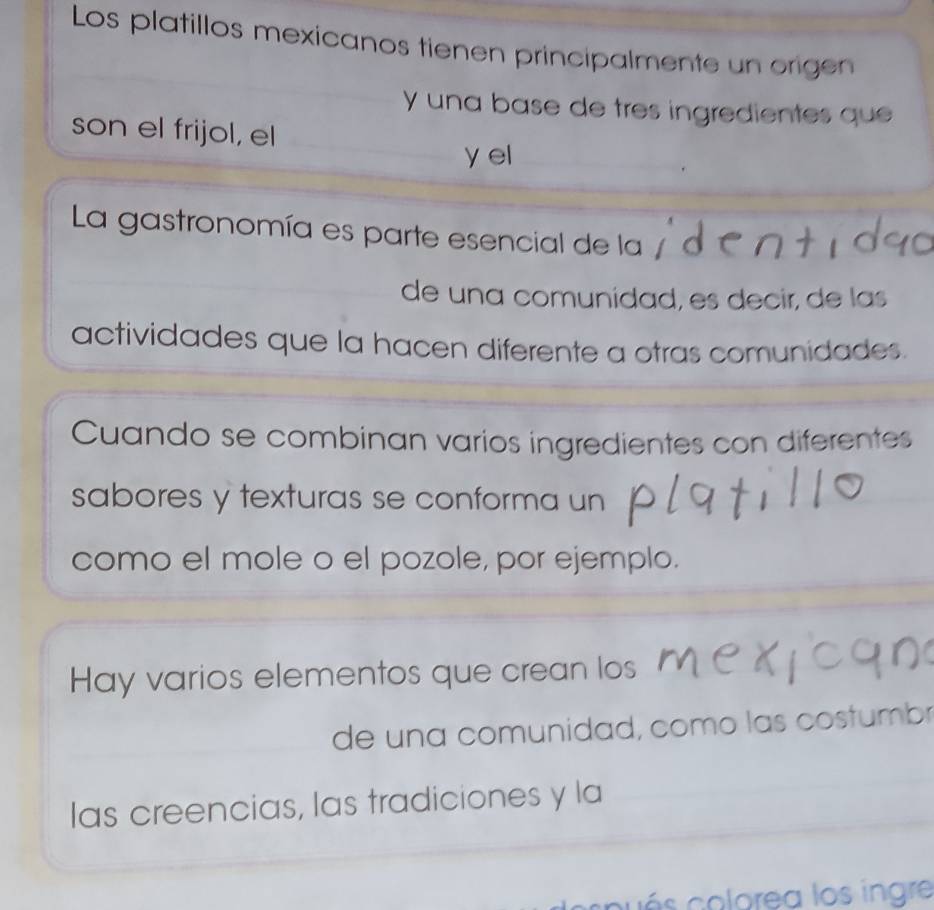 Los platillos mexicanos tienen principalmente un origen
y una base de tres ingredientes que
son el frijol, el
y el .
La gastronomía es parte esencial de la identidad
de una comunidad, es decir, de las
actividades que la hacen diferente a otras comunidades.
Cuando se combinan varios ingredientes con diferentes
sabores y texturas se conforma un platillo
como el mole o el pozole, por ejemplo.
Hay varios elementos que crean los mexicano
de una comunidad, como las costumbr
las creencias, las tradiciones y la
después colorea los ingre